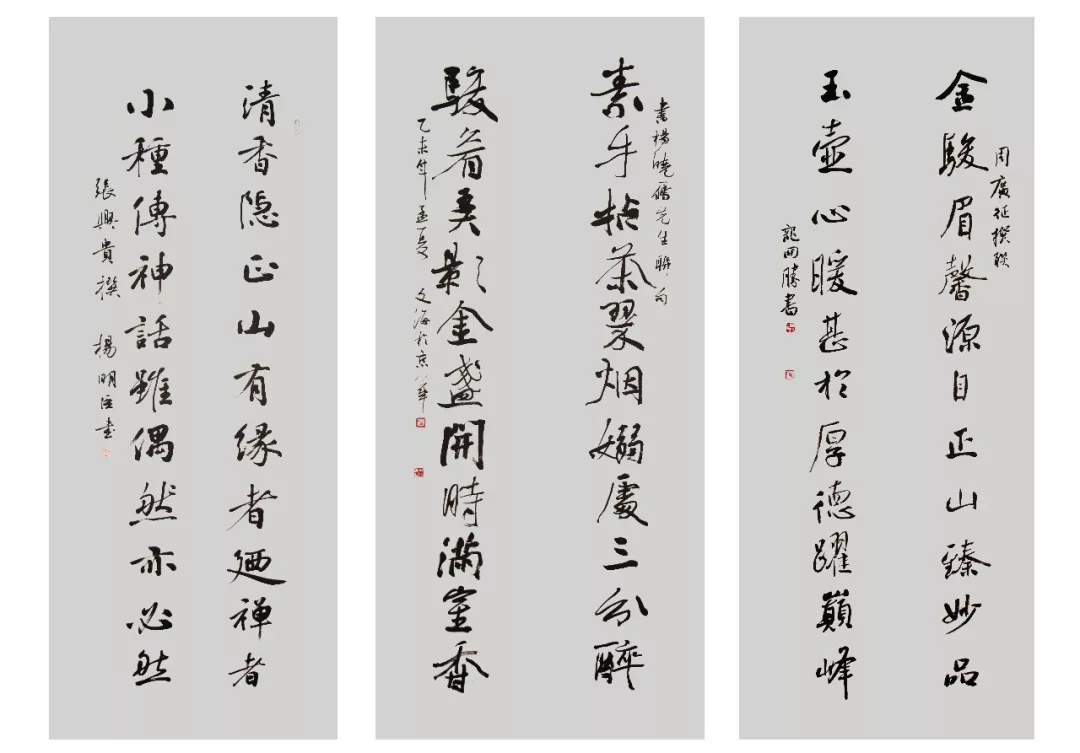 周廣征撰联
金駿眉馨源自正山臻妙品
玉壺心暖甚於厚德躍巔峰
龍開勝書
書楊曉先生聯句
素手拈茶翠烟嫋處三分醉
駿眉影金盞開時滿室香
乙未年孟夏 文海於京華
清香隐正山有緣者廼禅者
小種傳神話雖偶然亦必然
張興貴撰 楊明臣書